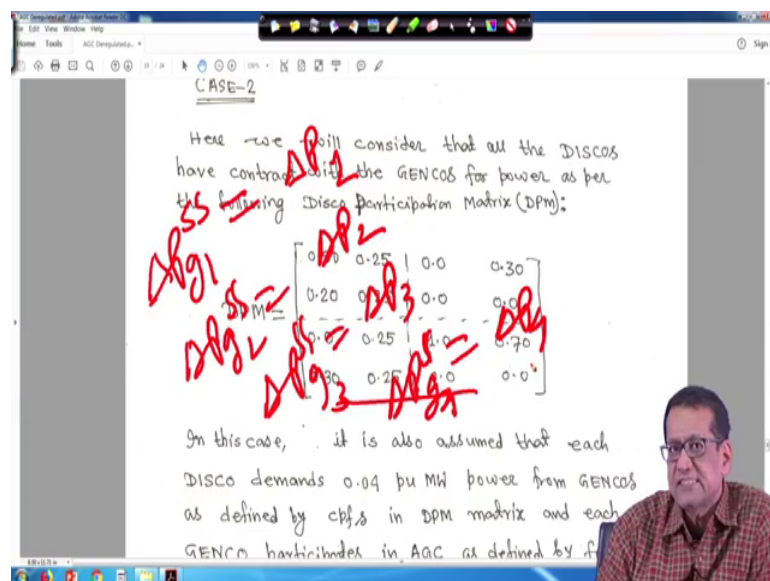 AGC Deregulated.pdf - Adobe Acrobat Reader DC
File Edit View Window Help
Home Tools AGC Deregulated.p... × Sign
CASE-2
Here we will consider that all the DISCOS
have contract with the GENCOS for power as per
the following Disco Participation Matrix (DPM):
0.25 0.0 0.30
DPM = 0.20 0.0
0.25 1.0 0.70
0.30 0.25 0.0
ΔPg1 ss = ΔPL
ΔPg2 ss = ΔP2
ΔPg3 ss = ΔP3
ΔPg4 ss = ΔP4
In this case, it is also assumed that each
DISCO demands 0.04 pu MW power from GENCOS
as defined by cpfs in DPM matrix and each
GENCO participates in AGC as defined by